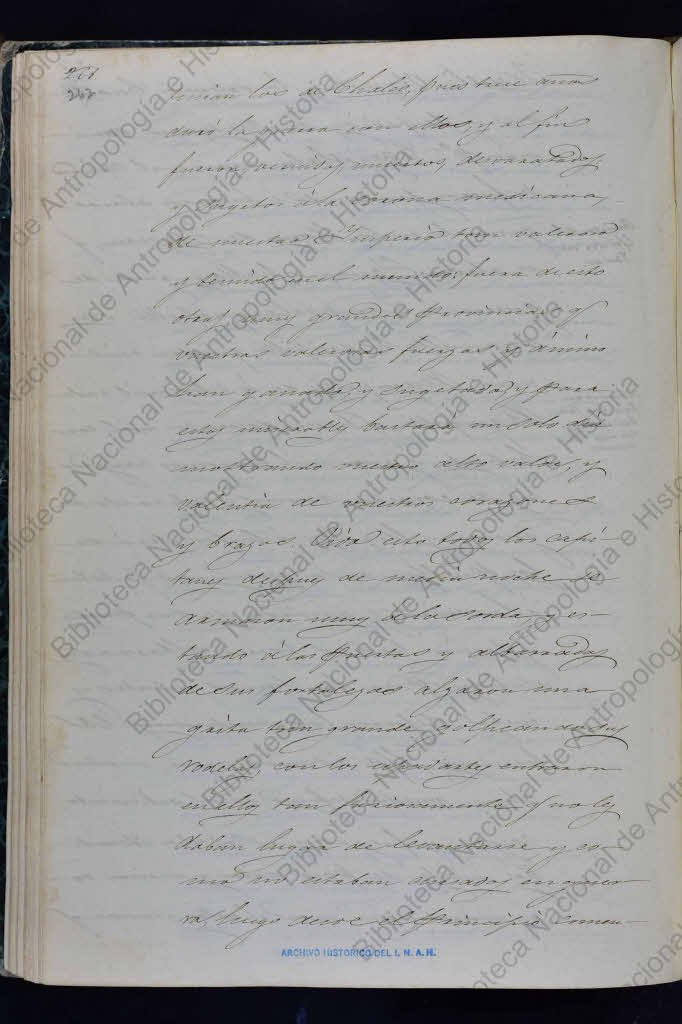 262
tenian los de Chalco, pues trece años
duró la guerra con ellos, y al fin
fueron vencidos, muertos, desvaratados,
y sugetos á la corona mexicana,
de nuestro Imperio tan valeroso
y temido en el mundo: fuera de esto
otras muy grandes Provincias q
vuestras valerosas fuerzas y ánimo
han ganado, y sugetado, y para
estos miserables bastará un solo dia
mostrando vuestro alto valor, y
valentia de vuestros corazones
y brazos. Oido esto todos los capi-
tanes despues de media noche se
armaron muy á la sorda, y es-
tando á las puertas y albarradas
de sus fortalezas alzaron una
grita tan grande golpeando sus
rodelas, con los espadartes entraron
en ellos tan furiosamente q no les
daban lugar de levantarse y co-
mo no estaban avezados en guer-
ra, luego desde el Principio comen-
ARCHIVO HISTORICO DEL I. N. A. H.
Biblioteca Nacional de Antropología e Historia